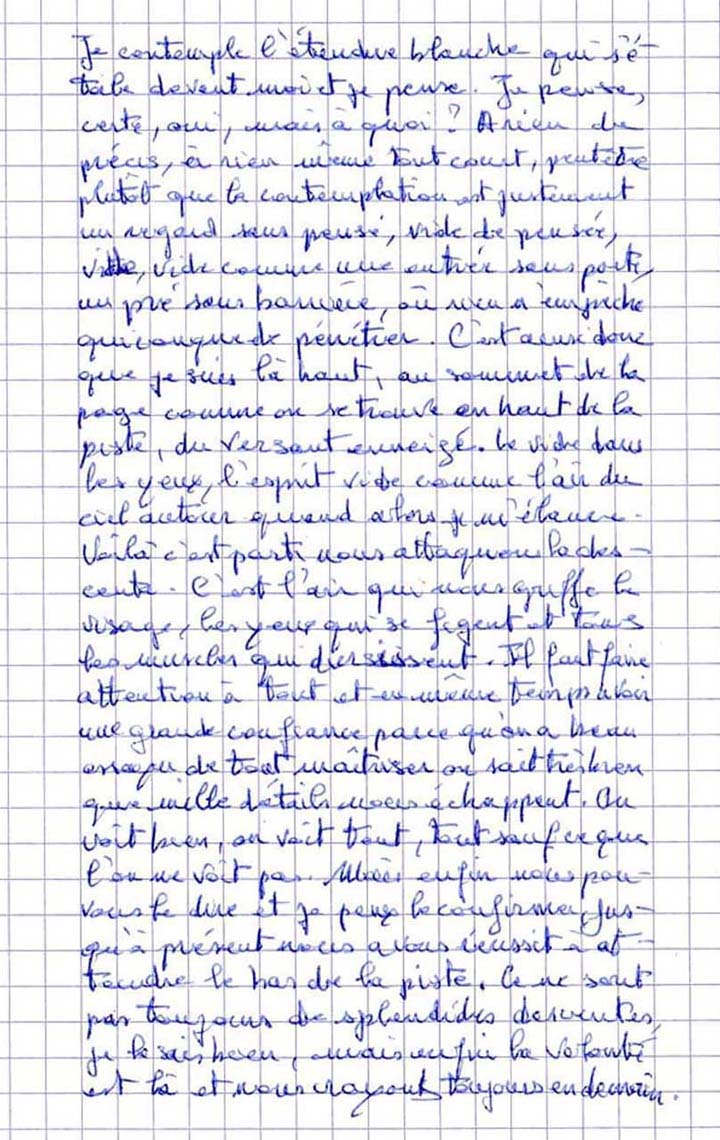 Je contemple l'étendue blanche qui s'é-
tale devant moi et je pense. Je pense,
certe, oui, mais à quoi ? A rien de
précis, à rien même tout court, peutêtre
plutôt que la contemplation est justement
un regard sans pensé, vide de pensée,
vide, vide comme une entrée sans porte,
un pré sans barrière, où rien n'empêche
quiconque de pénétrer. C'est ainsi donc
que je suis là haut, au sommet de la
page comme on se trouve en haut de la
piste, du versant enneigé. Le vide dans
les yeux, l'esprit vide comme l'air du
ciel autour quand alors je m'élance.
Voilà c'est parti nous attaquons la des-
cente. C'est l'air qui nous griffe le
visage, les yeux qui se figent et tous
les muscles qui durcissent. Il faut faire
attention à tout et en même temps avoir
une grande confiance parce qu'on a beau
essayer de tout maîtriser on sait très bien
que mille détails nous échappent. On
voit bien, on voit tout, tout sauf ce que
l'on ne voit pas. Mais enfin nous pou-
vons le dire et je peux le confirmer, jus-
qu'à présent nous avons réussit à at-
teindre le bas de la piste. Ce ne sont
pas toujours de splendides descentes,
je le sais bien, mais enfin la volonté
est là et nous croyons toujours en demain.